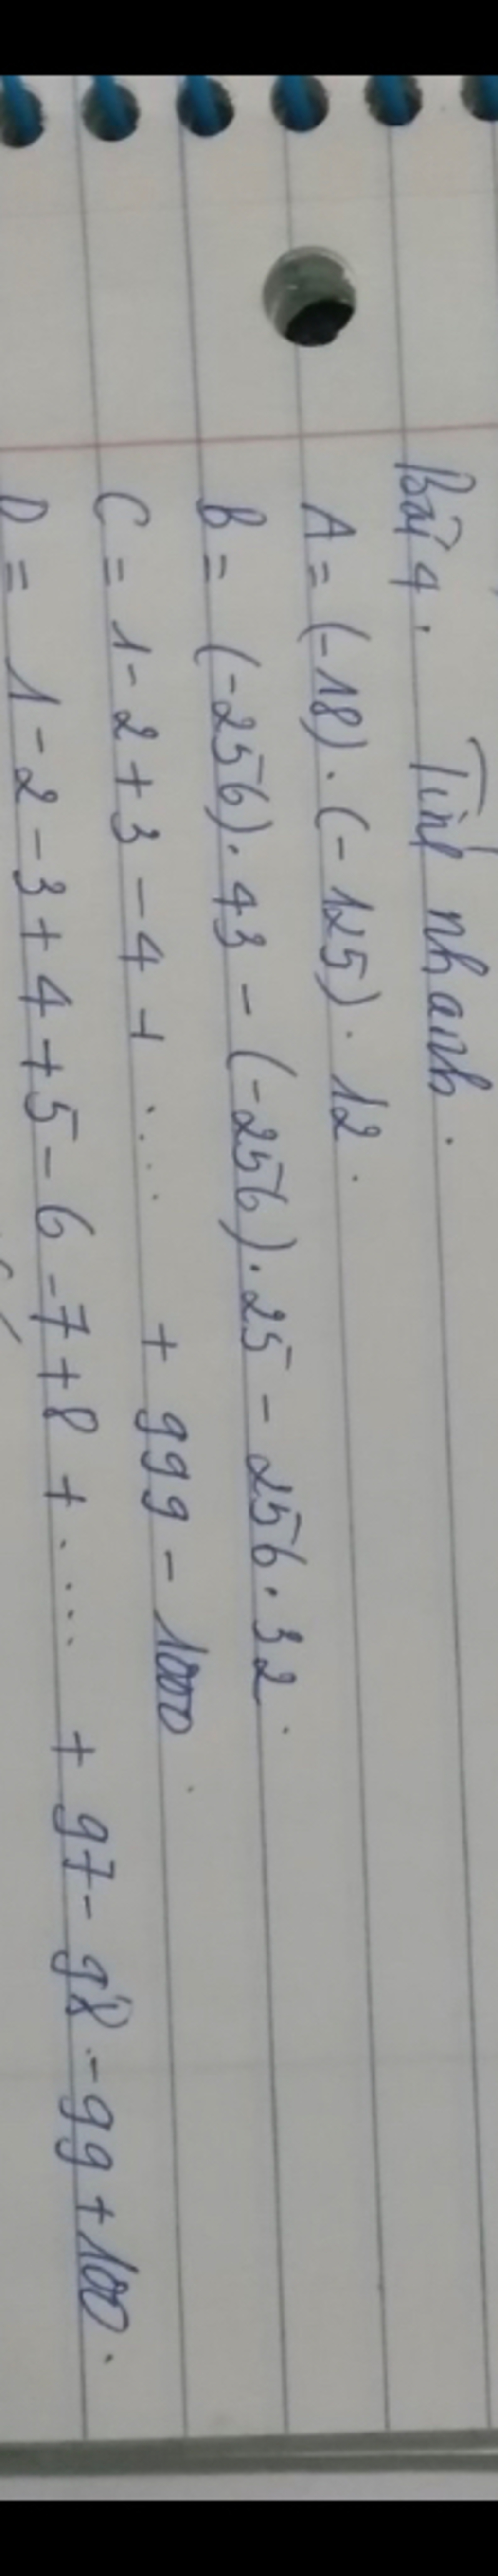 Bài 4. Tính nhanh.
A = (-18).(-125).12.
B = (-256).43 - (-256).25 - 256.32.
C = 1-2+3-4+.... + 999 - 1000.
D = 1-2-3+4+5-6-7+8+.... + 97-98-99+100.